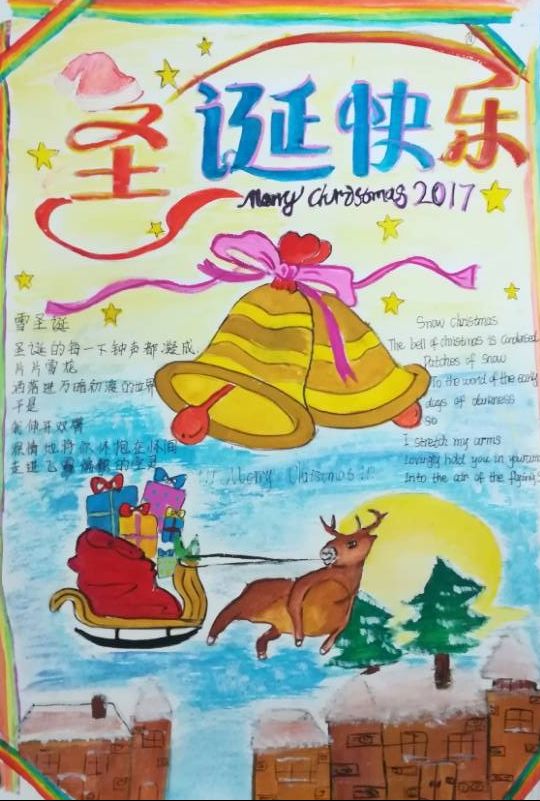 圣诞快乐
Merry Christmas 2017
雪圣诞
圣诞的每一下钟声都凝成
片片雪花
洒落进万暗初的世界
于是
伸开双臂
情地将你怀抱在怀间
走进飞雪的
Snow christmas
The bell of christmas is condensed
Patches of snow
To the world of the early
days of darkness
so
I stretch my arms
Lovingly hold you in your arms
Into the air of the flying
!!! Merry Christmas !!!